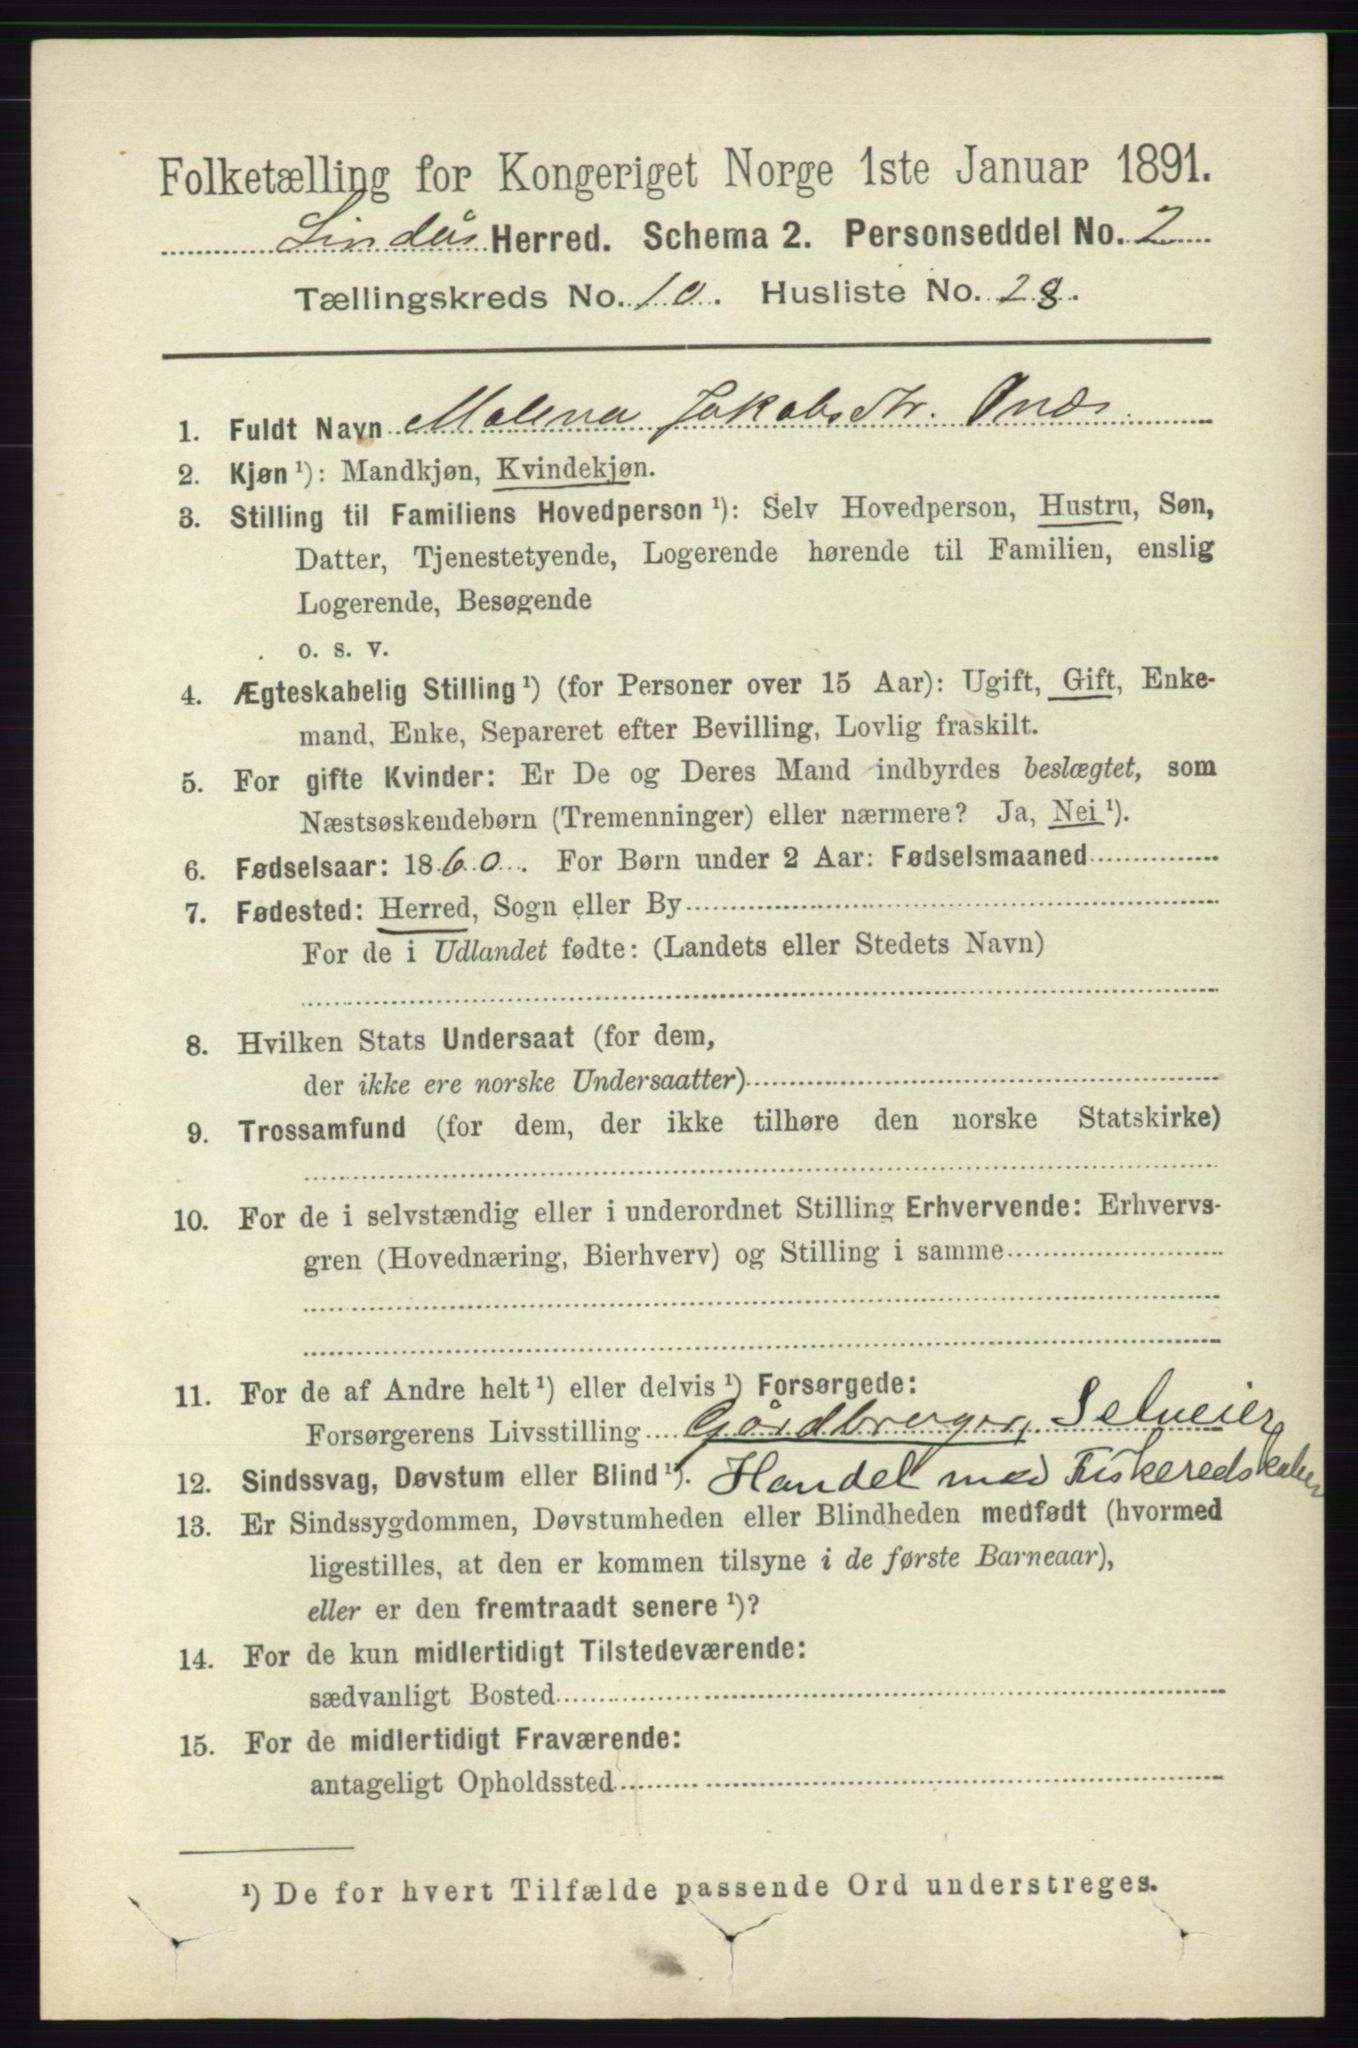 Folketælling for Kongeriget Norge 1ste Januar 1891.
Lindås Herred. Schema 2. Personseddel No. 2
Tællingskreds No. 10. Husliste No. 28.
1. Fuldt Navn Malena Jakobsdtr.
2. Kjøn ¹): Mandkjøn, Kvindekjøn.
3. Stilling til Familiens Hovedperson ¹): Selv Hovedperson, Hustru, Søn,
Datter, Tjenestetyende, Logerende hørende til Familien, enslig
Logerende, Besøgende
o. s. v.
4. Ægteskabelig Stilling ¹) (for Personer over 15 Aar): Ugift, Gift, Enke-
mand, Enke, Separeret efter Bevilling, Lovlig fraskilt.
5. For gifte Kvinder: Er De og Deres Mand indbyrdes beslægtet, som
Næstsøskendebørn (Tremenninger) eller nærmere? Ja, Nei ¹).
6. Fødselsaar: 1860. For Børn under 2 Aar: Fødselsmaaned
7. Fødested: Herred, Sogn eller By
For de i Udlandet fødte: (Landets eller Stedets Navn)
8. Hvilken Stats Undersaat (for dem,
der ikke ere norske Undersaatter)
9. Trossamfund (for dem, der ikke tilhøre den norske Statskirke)
10. For de i selvstændig eller i underordnet Stilling Erhvervende: Erhvervs-
gren (Hovednæring, Bierhverv) og Stilling i samme
11. For de af Andre helt ¹) eller delvis ¹) Forsørgede:
Forsørgerens Livsstilling Gårdbruger, Selveier
12. Sindssvag, Døvstum eller Blind ¹). Handel med Fiskeredskaber
13. Er Sindssygdommen, Døvstumheden eller Blindheden medfødt (hvormed
ligestilles, at den er kommen tilsyne i de første Barneaar),
eller er den fremtraadt senere ¹)?
14. For de kun midlertidigt Tilstedeværende:
sædvanligt Bosted
15. For de midlertidigt Fraværende:
antageligt Opholdssted
¹) De for hvert Tilfælde passende Ord understreges.